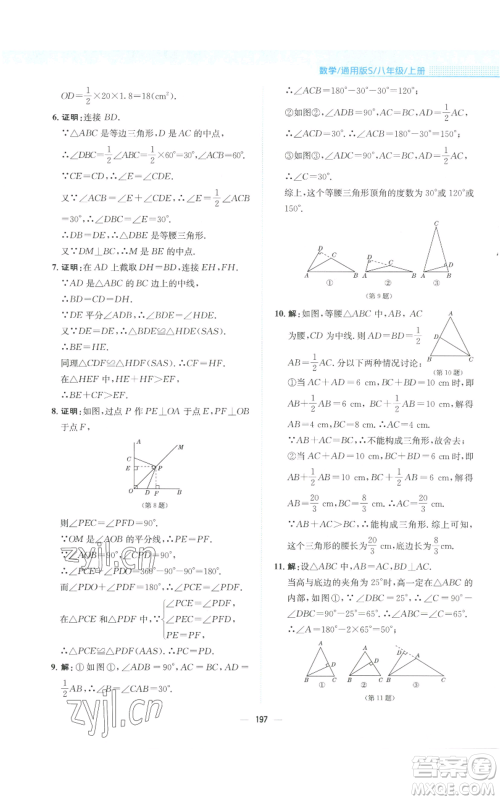 数学/通用版S/八年级/上册
OD=1/2×20×1.8=18(cm²).
6. 证明:连接 BD.
∵△ABC 是等边三角形,D 是 AC 的中点,
∴∠DBC=1/2∠ABC=30°,∠ACB=60°.
∵CE=CD,∴∠E=∠CDE.
又∵∠ACB=∠E+∠CDE,∴∠E=1/2∠ACB
=30°,∴∠DBC=∠E=30°.
∴BD=ED,∴△DBE 是等腰三角形.
又∵DM⊥BC,∴M 是 BE 的中点.
7. 证明:在 AD 上截取 DH=BD,连接 EH,FH.
∵AD 是△ABC 一边 BC 上的中线,
∴BD=CD=DH.
∵DE 平分∠ADB,∴∠BDE=∠HDE.
又∵DE=DE,∴△BDE≌△HDE(SAS).
∴BE=HE.
同理△CDF≌△HDF(SAS).∴CF=HF.
在△HEF 中,HE+HF>EF,
∴BE+CF>EF.
8. 证明:如图,过点 P 作 PE⊥OA 于点 E,PF⊥OB
于点 F,
A
M
C
E
P
O
D
F
B
(第 8 题)
则∠PEC=∠PFD=90°.
∵OM 是∠AOB 的平分线,∴PE=PF.
∵∠AOB=90°,∠CPD=90°,
∴∠PCE+∠PDO=360°-90°-90°=180°.
而∠PDO+∠PDF=180°,∴∠PCE=∠PDF.
在△PCE 和△PDF 中,
∠PCE=∠PDF,
∠PEC=∠PFD,
PE=PF,
∴△PCE≌△PDF(AAS),∴PC=PD.
9. 解:① 如图①,∠ADB=90°,AD=
1/2 AB,∴∠B=30°,AC=BC,∴∠CAB=30°,
∴∠ACB=180°-30°-30°=120°;
② 如图②,∠ADB=90°,AD=1/2AC,
∴∠ACD=30°,
∵AC=BC,∴∠ACB=150°;
③ 如图③,∠ADC=90°,AD=1/2AC,
∴∠C=30°.
综上,这个等腰三角形顶角的度数为 30°或 120°或
150°.
①
②
③
(第 9 题)
10. 解:如图,△ABC 为等腰三角形,AB=AC,AB
为腰,CD 为中线.则 AD=BD=
1/2AB=1/2AC.分以下两种情况讨论:
(第 10 题)
①当 AC+AD=6 cm,BC+BD=10 cm 时,
AB=4 cm,BC=8 cm.
∵AB+AC=BC,不能构成三角形,故舍去;
②当 AC+AD=10 cm,BC+BD=6 cm 时,
AB=20/3 cm,BC=8/3 cm.
∵AB+BC>AC,∴能构成三角形,
∴AB=AC=20/3 cm,BC=8/3 cm.综上可知,这
个三角形的腰长为20/3 cm,底边长为8/3 cm.
11. 解:设△ABC 中,AB=AC,BD⊥AC.
当高与底边的夹角为 25°时,高一定在△ABC 的
内部,如图①,∵∠DBC=25°,∴∠C=90°-
∠CBD=90°-25°=65°.∴∠ABC=∠C=65°.
∴∠A=180°-2×65°=50°.
①
②
③
(第 11 题)
197
zyjl.cn
zyjl.cn